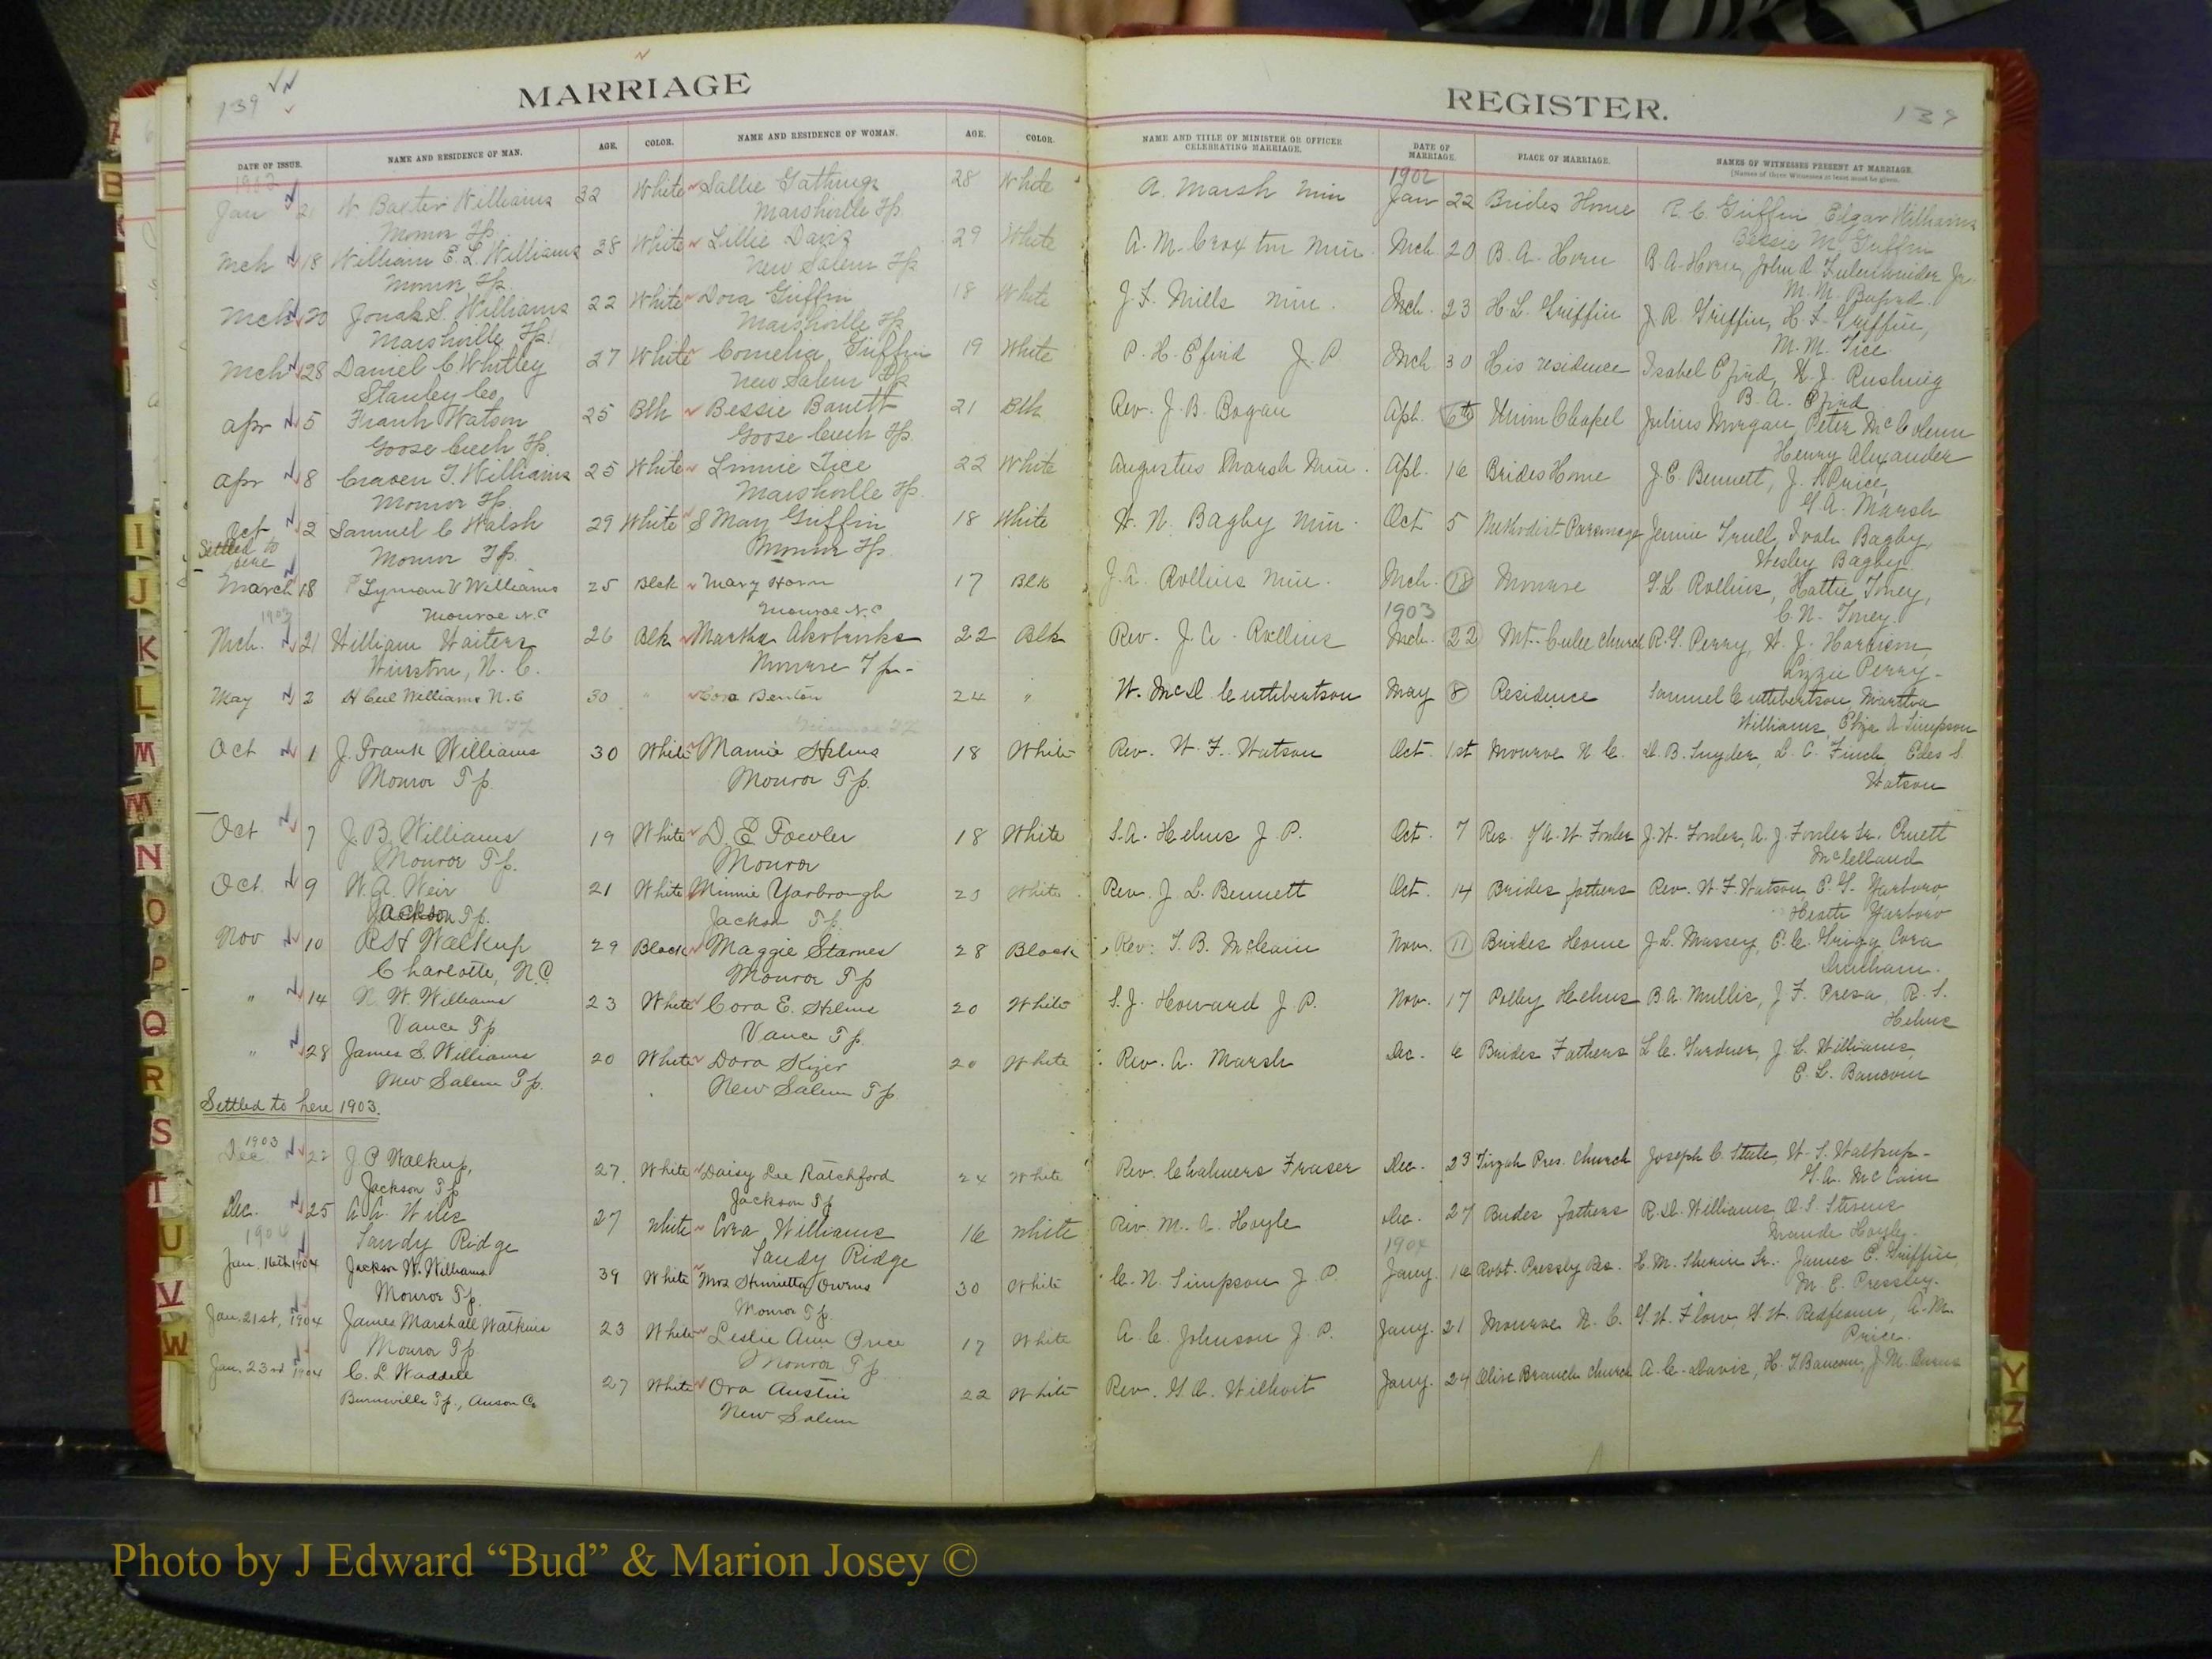 MARRIAGE REGISTER.
139 139
DATE OF ISSUE. NAME AND RESIDENCE OF MAN. AGE. COLOR. NAME AND RESIDENCE OF WOMAN. AGE. COLOR. NAME AND TITLE OF MINISTER OR OFFICER CELEBRATING MARRIAGE. DATE OF MARRIAGE. PLACE OF MARRIAGE. NAMES OF WITNESSES PRESENT AT MARRIAGE.
[Names of three Witnesses at least must be given.
1902 1902
Jan 21 W Baxter Williams 32 White Sallie Gathings 28 White A. Marsh Min Jan 22 Brides Home R. C. Griffin Edgar Williams
Monroe Tp. Marshville Tp. Bessie M. Griffin
Mch 18 William E. L. Williams 38 White Lillie Davis 29 White A. M. Croxton Min. Mch 20 B. A. Horn B. A. Horn, John D. Jr.
Monroe Tp. New Salem Tp M. M.
Mch 20 Jonah S. Williams 22 White Dora Griffin 18 White J. F. Mills Min. Mch. 23 H. L. Griffin J. R. Griffin, H. F. Griffin,
Marshville Tp. Marshville Tp M. M. Tice
Mch 28 Daniel C Whitley 27 White Cornelia Griffin 19 White P. H. Efird J. P. Mch 30 His residence Isabel Efird, Rushing
Stanley Co. New Salem Tp B. A. Efird
Apr 5 Frank Watson 25 Blk Bessie Barrett 21 Blk Rev. J. B. Bogan Apl. 6th Union Chapel Julius Morgan, Peter
Goose Creek Tp. Goose Creek Tp. Henry Alexander
Apr 8 Craven T. Williams 25 White Linnie Tice 22 White Augustus Marsh Min. Apl. 16 Brides Home J. C. Bennett, J. Price,
Monroe Tp. Marshville Tp. G. A. Marsh
Oct 2 Samuel C Walsh 29 White S May Griffin 18 White H. N. Bagby Min. Oct 5 Methodist Parsonage Jennie Trull, Bagby,
Settled to here Monroe Tp. Monroe Tp. Wesley Bagby.
March 18 Lyman V Williams 25 Blck Mary Horn 17 Blk J. A. Rollins Min. Mch. 18 Monroe G. L. Rollins, Hattie Toney,
1903 Monroe N. C Monroe N. C 1903 C. N. Toney.
Mch. 21 William Waiters 26 Blk Martha 22 Blk Rev. J. A. Rollins Mch. 22 Mt. church R. G. Perry, W. J. Harrison
Winston, N. C. Monroe Tp. Lizzie Perry
May 2 Williams N. C 30 " Cora Benton 24 " W. McD. Cuthbertson May 8 Residence Samuel Cuthbertson, Martha
Monroe Tp Monroe Tp Williams, Eliza A Simpson
Oct 1 J. Frank Williams 30 White Mamie Helms 18 White Rev. W. F. Watson Oct. 1st Monroe N C. D. B. Snyder, L. C. Finch, S.
Monroe Tp. Monroe Tp. Watson
Oct 7 J. B. Williams 19 White D. E Fowler 18 White S. A. Helms J. P. Oct. 7 Res. of A. W. Fowler J. W. Fowler, A. J. Fowler Sr.
Monroe Tp. Monroe McLelland
Oct. 9 W. A. Weir 21 White Minnie Yarbrough 20 White Rev. J. L. Bennett Oct. 14 Brides fathers Rev. W. F Watson, E. G. Yarboro,
Jackson Tp. Jackson Tp. Heath Yarboro
Nov 10 R. H Walkup 29 Black Maggie Starnes 28 Black Rev. T. B. McCain Nov. 11 Brides Home J. L. Massey, E. C. Grigg Cora
Charlotte, N. C Monroe Tp
" 14 N. W. Williams 23 White Cora E. Helms 20 White S. J. Howard J. P. Nov. 17 Polly Helms B. A. Mullis, J. F. Presa, R. S.
Vance Tp Vance Tp. Helms
" 28 James S. Williams 20 White Dora Kizer 20 White Rev. A. Marsh Dec. 6 Brides Fathers L. C. Gardner, J. L. Williams,
New Salem Tp. New Salem Tp. E. L. Baucom
Settled to here 1903.
1903
Dec. 22 J. P Walkup, 27. White Daisy Lee Ratchford 24 White Rev. Chalmers Fraser Dec. 23 Tirzah Pres. church Joseph C. Steele, W. S. Walkup
Jackson Tp Jackson Tp G. A. McCain
Dec. 25 A. A. Wiles 27 White Cora Williams 16 White Rev. M. A. Hoyle Dec. 27 Brides fathers R. D. Williams, O. S. Stevens
1904 Sandy Ridge Sandy Ridge 1904 Maude Hoyle.
Jan. 16th 1904 Jackson W. Williams 39 White Mrs Henrietta Owens 30 White C. N. Simpson J. P. Jany. 16 Robt. Pressly Res. H. M. James E. Griffin,
Monroe Tp. Monroe Tp. M. E. Pressley.
Jan. 21st, 1904 James Marshall Watkins 23 White Leslie Ann Price 17 White A. C. Johnson J. P. Jany. 21 Monroe N. C. G. W. Flow, G. W. Redfearn, A. M.
Monroe Tp Monroe Tp. Price.
Jan. 23rd 1904 C. L. Waddell 27 White Ora Austin 22 White Rev. G. O. Wilhoit Jany. 24 Olive Branch church A. C. Davis, H. T. Baucom, J. M. Burns
Burnsville Tp., Anson Co New Salem
B I J K L M M N O P Q R S T U V W Y Z
Photo by J Edward “Bud” & Marion Josey ©